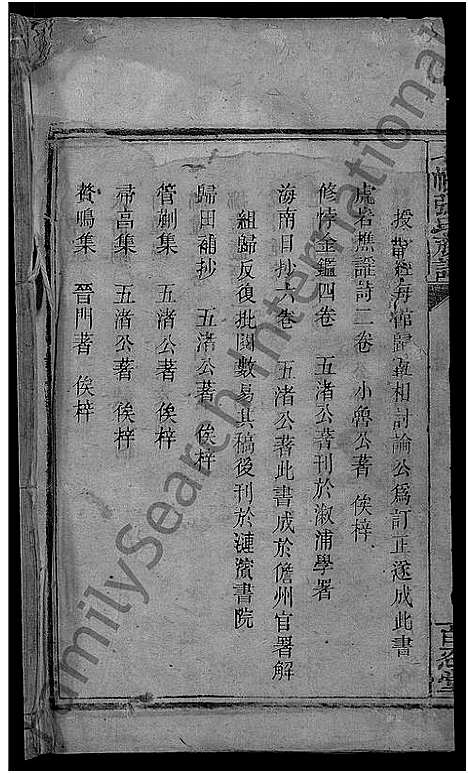 授 經每館歸 相討論公爲訂正遂成此書
虎岩樵謳詩二卷 小魯公著 俟梓
修悖金鑑四卷 五渚公著刊於溆浦學署
海南日抄六卷 五渚公著此書成於儋州官署解
組歸反復批閱數易其稿後刊於漣濱書院
歸田補抄 五渚公著 俟梓
管蒯集 五渚公著 俟梓
帚高集 五渚公著 俟梓
贅鳴集 晉門著 俟梓
張氏族譜
百忍堂
FamilySearch International